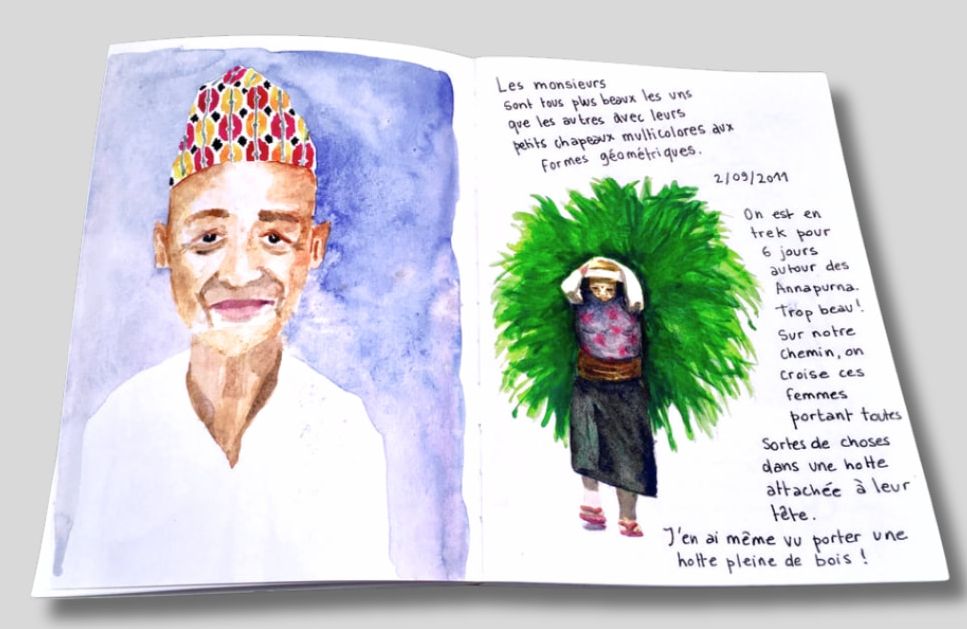 Les monsieurs
sont tous plus beaux les uns
que les autres avec leurs
petits chapeaux multicolores aux
formes géométriques.
2/09/2011
On est en
trek pour
6 jours
autour des
Annapurna.
Trop beau!
Sur notre
chemin, on
croise ces
femmes
portant toutes
Sortes de choses
dans une hotte
attachée à leur
tête.
J'en ai même vu porter une
hotte pleine de bois !